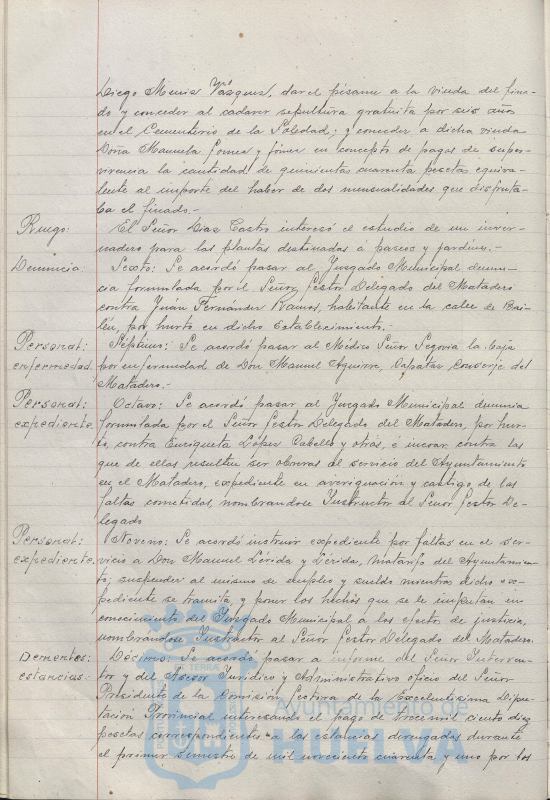 Diego Menis Vázquez, dar el pésame a la viuda del fina-
do y conceder al cadaver sepultura gratuita por seis años
en el Cementerio de la Soledad; y conceder a dicha viuda
Doña Manuela Gomez y en concepto de pagas de super-
vivencia la cantidad de quinientas cuarenta pesetas equiva-
lente al importe del haber de dos mensualidades que disfruta-
ba el finado.-
Ruego: El Señor Diaz Castro interesó el estudio de un inver-
nadero para las plantas destinadas a paseos y jardines.-
Denuncia: Sexto: Se acordó pasar al Juzgado Municipal denun-
cia formulada por el Señor Gestor Delegado del Matadero
contra Juan Fernández Ramos, habitante en la calle de Bai-
lén, por hurto en dicho Establecimiento.-
Personal: Séptimo: Se acordó pasar al Médico Señor Segovia la baja
enfermedad. por enfermedad de Don Manuel Aguirre, Capataz Conserje del
Matadero.-
Personal: Octavo: Se acordó pasar al Juzgado Municipal denuncia
expediente. formulada por el Señor Gestor Delegado del Matadero, por hur-
to, contra Enriqueta López Cabello y otras, é incoar contra las
que de ellas resulten ser obreras al servicio del Ayuntamiento
en el Matadero, expediente en averiguación y castigo, de las
faltas cometidas, nombrandose Instructor al Señor Gestor De-
legado
Personal: Noveno: Se acordó instruir expediente por faltas en el ser-
expediente. vicio a Don Manuel Lérida y Lérida, Matarife del Ayuntamien-
to, suspender al mismo de empleo y sueldo mientras dicho ex-
pediente se tramita, y poner los hechos que se le imputan en
conocimiento del Juzgado Municipal a los efectos de justicia,
nombrandose Instructor al Señor Gestor Delegado del Matadero.
Dementes: Décimo: Se acordó pasar a informe del Señor Interven-
estancias. tor y del Asesor Juridico y Administrativo oficio del Señor
Presidente de la Comisión Gestora de la Excelentisima Dipu-
tación Provincial interesando el pago de trece mil ciento diez
pesetas correspondientes a las estancias devengadas durante
el primer semestre de mil novecientos cuarenta y uno por los
Ayuntamiento de
HUELVA